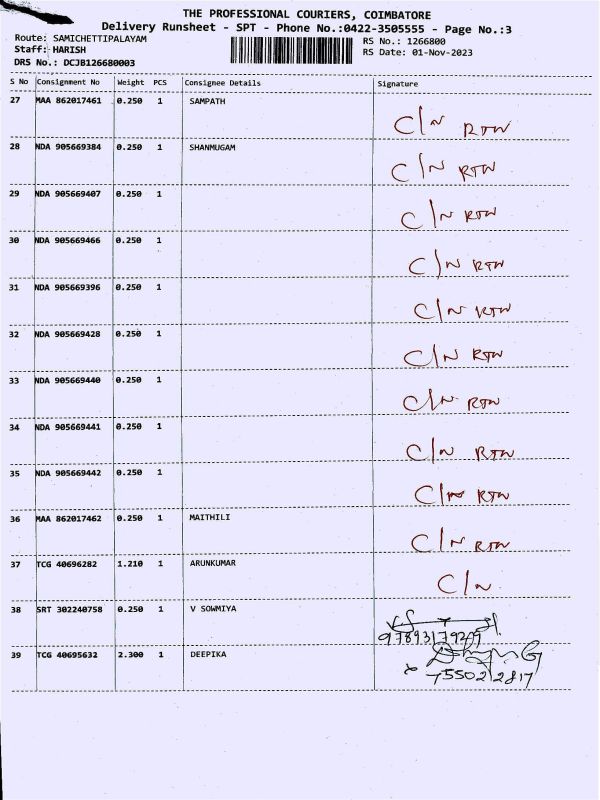 THE PROFESSIONAL COURIERS, COIMBATORE
Delivery Runsheet - SPT - Phone No.:0422-3505555 - Page No.:3
Route: SAMICHETTIPALAYAM
RS No.: 1266800
Staff: HARISH
RS Date: 01-Nov-2023
DRS No.: DCJB126680003
S No Consignment No Weight PCS Consignee Details Signature
27 MAA 862017461 0.250 1 SAMPATH
C/N RTN
28 NDA 905669384 0.250 1 SHANMUGAM
C/N RTN
29 NDA 905669407 0.250 1
C/N RTN
30 NDA 905669466 0.250 1
C/N RTN
31 NDA 905669396 0.250 1
C/N RTN
32 NDA 905669428 0.250 1
C/N RTN
33 NDA 905669440 0.250 1
C/N RTN
34 NDA 905669441 0.250 1
C/N RTN
35 NDA 905669442 0.250 1
C/N RTN
36 MAA 862017462 0.250 1 MAITHILI
C/N RTN
37 TCG 40696282 1.210 1 ARUNKUMAR
C/N
38 SRT 302240758 0.250 1 V SOWMIYA
39 TCG 40695632 2.300 1 DEEPIKA
7550212817